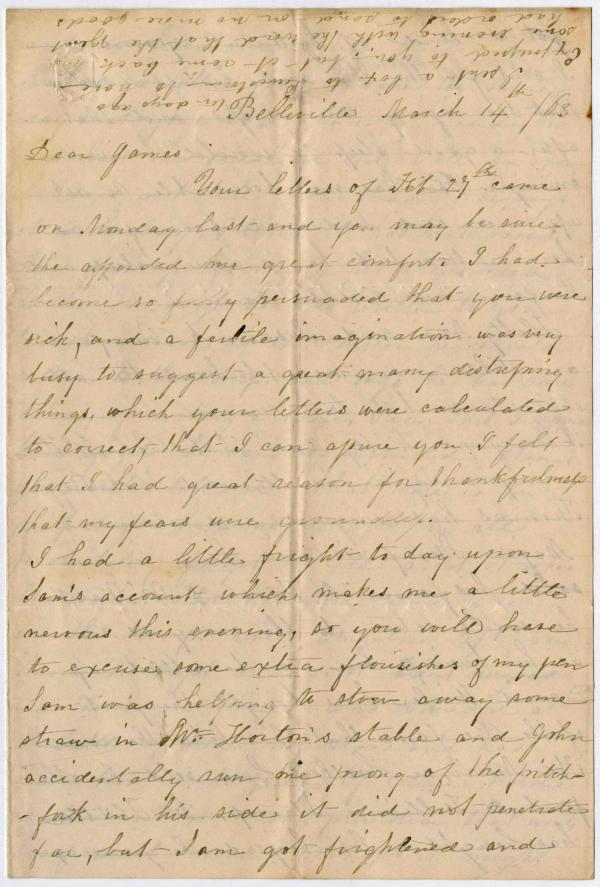 Ten days ago
I sent a box to Lewistown, to have
Expressed to you, but it came back the
same evening with the word that the agent
had orders to send on no more goods
Belleville March 14th /63
Dear James
Your letters of Feb 27th came
on Monday last and you may be sure
the afforded me great comfort. I had
become so fully persuaded that you were
sick, and a fertile imagination was very
busy to suggest a great many distressing
things, which your letters were calculated
to correct, that I can assure you I felt
that I had great reason for thankfulness
that my fears were groundless.
I had a little fright to day upon
Sam's account which makes me a little
nervous this evening, so you will have
to excuse some extra flourishes of my pen
Sam was helping to stow away some
straw in Mr. Horton's stable and John
accidentally run one prong of the pitch-
-fork in his side it did not penetrate
far, but Sam got frightened and